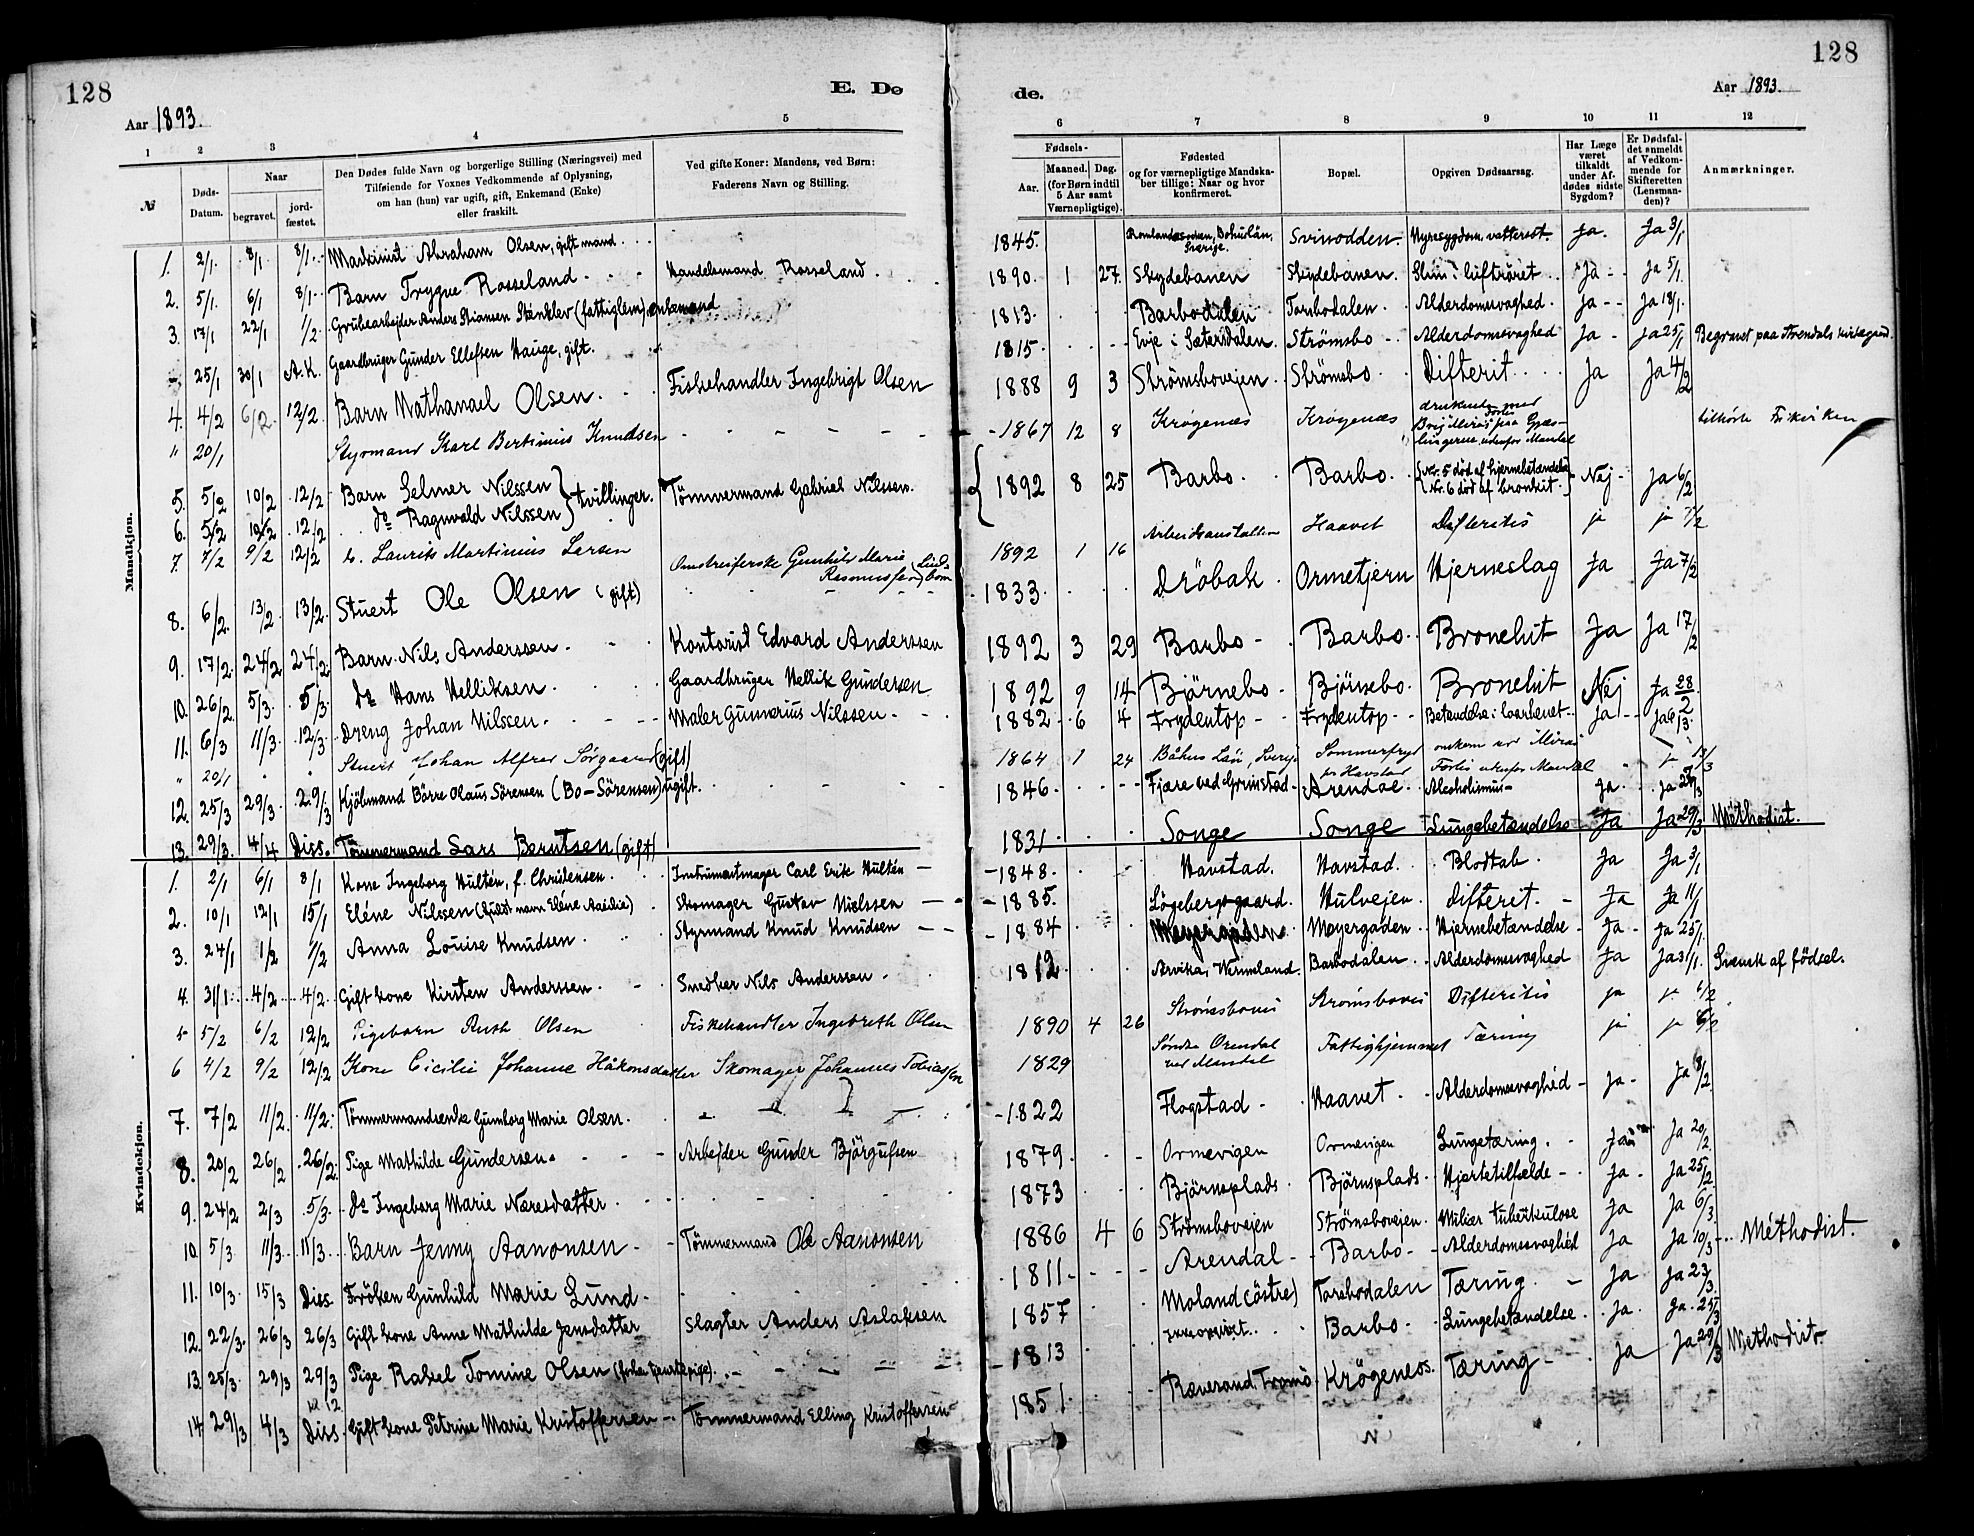 128
128
E. Dø
de.
Aar 1893.
Aar 1893.
1 2 3 4 5
6 7 8 9 10 11 12
№
Døds-Datum.
Naar
begravet.
jord-fæstet.
Den Dødes fulde Navn og borgerlige Stilling (Næringsvei) med
Tilføiende for Voxnes Vedkommende af Oplysning,
om han (hun) var ugift, gift, Enkemand (Enke)
eller fraskilt.
Ved gifte Koner: Mandens, ved Børn:
Faderens Navn og Stilling.
Fødsels-
Aar.
Maaned. Dag.
(for Børn indtil
5 Aar samt
Værnepligtige).
Fødested
og for værnepligtige Mandska-
ber tillige: Naar og hvor
konfirmeret.
Bopæl.
Opgiven Dødsaarsag.
Har Læge
været
tilkaldt
under Af-
dødes sidste
Sygdom?
Er Dødsfal-
det anmeldt
af Vedkom-
mende for
Skifteretten
(Lensman-
den)?
Anmærkninger.
Mandkjøn.
1. 2/1. 8/1. 8/1. Maskinist Abraham Olsen, gift mand. 1845. Bohuslän, Sverige. Svinodden. Nyresygdom, vattersot. Ja. Ja 3/1
2. 5/1. 6/1 8/1. Barn Trygve Rosseland Handelsmand Rosseland. 1890. 1 27. Skydebanen Skydebanen. Slim i luftröret Ja Ja 5/1.
3. 17/1 22/1 1/2. Grubearbejder Anders Stiansen Stenklev (fattiglem) enkemand 1813. Barbodalen Torsbodalen. Alderdomssvaghed. Ja Ja 18/1.
25/1 30/1 A.K. Gaardbruger Gunder Ellefsen Hauge, gift. 1815. Evje i Sætersdalen. Strömsbo Alderdomssvaghed Ja Ja 25/1 Begravet paa Arendals kirkegaard.
4. 4/2 6/2. 12/2. Barn Nathanael Olsen. Fiskehandler Ingebrigt Olsen 1888 9 3 Strömsbovejen. Strömsbo Difterit. Ja Ja 4/2
" 20/1 Styrmand Karl Bertinius Knudsen 1867 12 8 Krøgenæs Krøgenæs druknede med Brig "Mirás" paa Gjæs-lingerne, udenfor Mandal tilhörte Frikirken
5. 5/2 10/2 12/2 Barn Selmer Nilssen } tvillinger. Tömmermand Gabriel Nilssen. 1892 8 25 Barbo. Barbo. (Nr. 5 död af hjernebetændelse Nej Ja 6/2
6. 5/2 10/2 12/2 do Ragnvald Nilssen (Nr. 6 död af bronkit.)
7. 7/2 9/2 12/2 b. Laurits Martinius Larsen Omstreiferske Gunhild Marie Rasmussen 1892 1 16 Arbeidsanstalten Haavet Difteritis ja ja 7/2
8. 6/2. 13/2. 13/2. Stuert Ole Olsen (gift) 1833. Dröbak. Ormetjern Hjerneslag Ja Ja 7/2
9. 17/2. 24/2 24/2. Barn Nils Anderssen. Kontorist Edvard Anderssen 1892 3 29 Barbo Barbo. Bronchit Ja Ja 17/2
10. 26/2. 5/3. 5/3. do Hans Helliksen. Gaardbruger Hellik Gundersen 1892 9 14 Björnebo. Björnebo. Bronchit Nej Ja 28/2
11. 6/3 11/3. 12/3 Dreng Johan Nilssen. Maler Gunnerius Nilssen. 1882 6 4 Frydentop Frydentop Betændelse i laarbenet. Ja Ja 6/3.
" 20/1 " " Stuert Johan Alfred Sørgaard (gift) 1864 1 24 Båhus Län, Sverige Sommerfryd pr Havstad omkom ved "Mirás" Forlis udenfor Mandal " 13/3
12. 25/3 29/3. 29/3 Kjöbmand Börre Olaus Sörensen (Bo-Sörensen) ugift. 1846. Fjære ved Grimstad Arendal. Alcoholismus Ja. Ja 27/3
13. 29/3. 4/4 Diss. Tömmermand Lars Berntsen (gift) 1831. Songe Songe Lungebetændelse Ja Ja 29/3 Méthodist.
Kvindekjøn.
1. 2/1 6/1 8/1 Kone Ingeborg Hultén, f. Christensen. Instrumentmager Carl Erik Hultén 1848. Havstad. Havstad. Blodtab. Ja Ja 3/1
2. 10/1 12/1 15/1 Eléne Nilssen Skomager Gustav Nielssen 1885. Lögebergsgaard. Hulvejen. Difterit. Ja Ja 11/1
3. 24/1 1/2 1/2 Anna Louise Knudsen. Styrmand Knud Knudsen 1884 Meyergaden. Meyergaden. Hjernebetændelse Ja Ja 25/1.
4. 31/1. 4/2. 4/2. Gift kone Kirsten Anderssen. Snedker Nils Anderssen. 1812. Arvika, Wermeland. Barbodalen. Alderdomssvaghed Ja Ja 31/1. Svensk af födsel.
5 5/2 6/2 12/2 Pigebarn Ruth Olsen Fiskehandler Ingebreth Olsen 1890 4 26 Strömsbovei Strömsbovei Difteritis ja 6/2
6 4/2 9/2 12/2 Kone Cicilie Johanne Håkonsdatter Skomager Johannes Tobiassen 1829 Søndre Orendal ved Mandal Fattighjemmet Tæring ja 6/2
7. 7/2 11/2. 11/2. Tömmermandsenke Gunborg Marie Olsen. 1822 Flogstad Haavet. Alderdomssvaghed Ja. Ja 8/2.
8. 20/2 26/2 26/2. Pige Mathilde Gundersen. Arbejder Gunder Björgufsen 1879. Ormevigen Ormevigen Lungetæring. Ja Ja 20/2.
9. 24/2 2/3 5/3. do Ingeborg Marie Næresdatter. 1873 Björnsplads. Björnsplads. Hjertetilfælde Ja. Ja 25/2
10. 5/3 11/3. 11/3. Barn Jenny Aanonsen Tömmermand Ole Aanonsen 1886 4 6 Strömsbovejen Strömsbovejen. Miliær tuberkulose Ja Ja 6/3
11. 10/3. 15/3 Diss. Fröken Gunhild Marie Lund. 1811 Arendal Barbo Alderdomssvaghed Ja Ja 10/3 Méthodist.
12. 22/3. 26/3 26/3 Gift kone Anne Mathilde Jensdatter Slagter Anders Aslaksen 1857 Moland (östre) Torsbodalen Tæring. Ja Ja 23/3.
13. 25/3. 29/3 29/3 Pige Rakel Tomine Olsen (forhen tjenestepige). 1813 Ikke opgivet. Barbo. Lungebetændelse. Ja. Ja. 25/3
14. 29/3 4/3 Diss. Gift kone Petrine Marie Kristoffersen Tömmermand Elling Kristoffersen 1851. Rævesand, Tromö Krögenæs. Tæring Ja Ja 29/3 Methodist